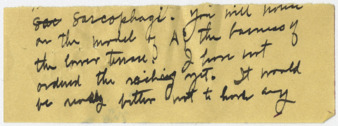 sarcophagi. You will
on the model to A, the bareness of
the lower terrace. I have not
ordered the yet. It would
be really better not to have any